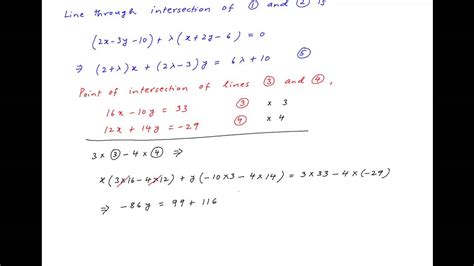 Line through intersection of ① and ② is
(2x-3y-10) + λ (x+2y-6) = 0
⇒ (2+λ)x + (2λ-3)y = 6λ+10 ⑤
Point of intersection of lines ③ and ④,
16x - 10y = 33 ③ × 3
12x + 14y = -29 ④ × 4
3 × ③ - 4 × ④ ⇒
x(3×16-4×12) + y(-10×3 - 4×14) = 3×33 - 4×(-29)
⇒ -86y = 99 + 116